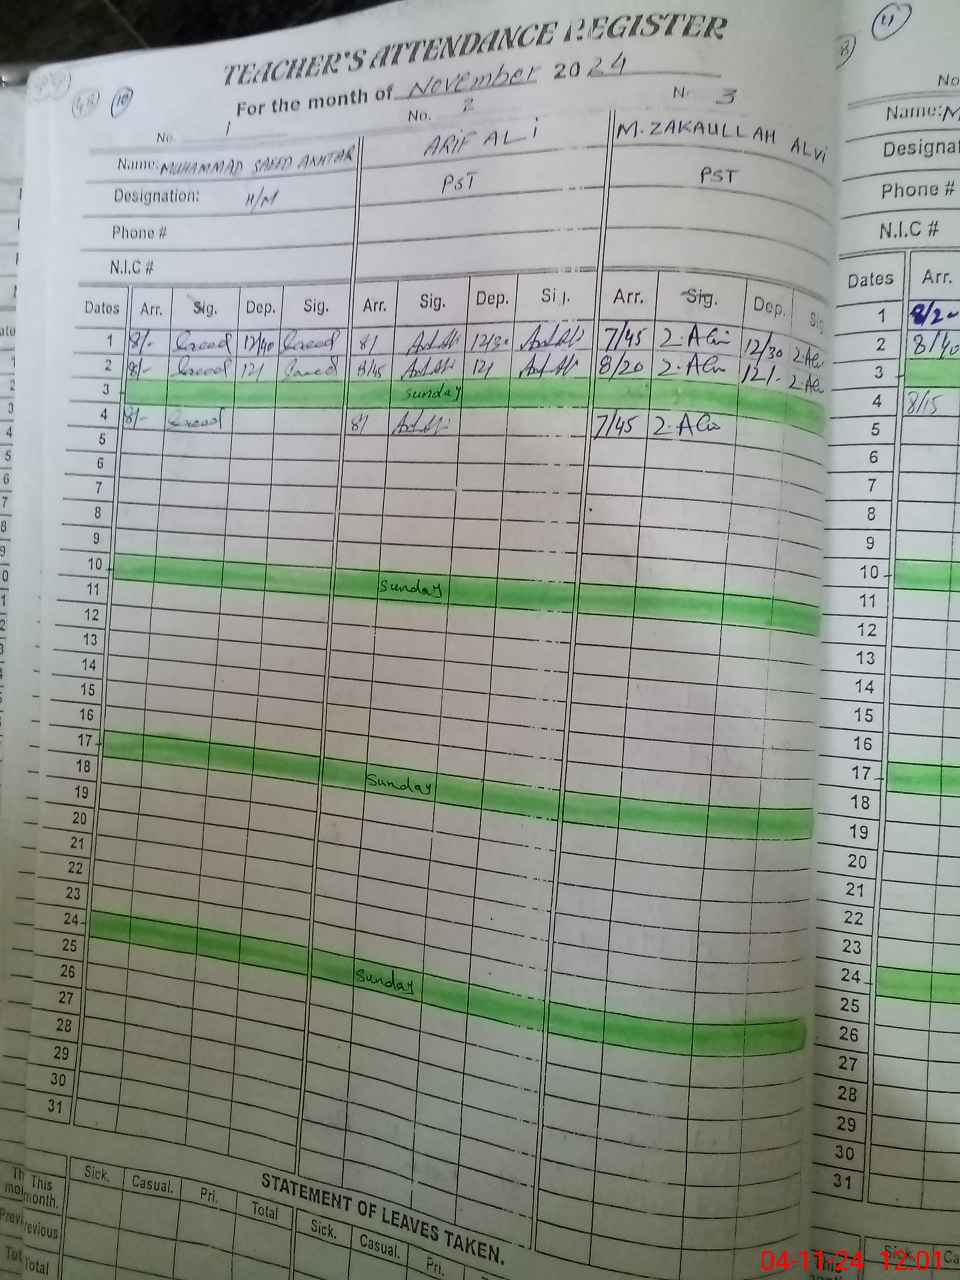 TEACHER'S ATTENDANCE REGISTER
For the month of November 2024
48 10 11
No. 1 No. 2 No. 3
Name: MUHAMMAD SAEED AKHTAR ARIF ALI M. ZAKAULLAH ALVI
Designation: H/M PST PST
Phone #
N.I.C #
Dates Arr. Sig. Dep. Sig. Arr. Sig. Dep. Sig. Arr. Sig. Dep. Sig
1 8/- Saeed 12/40 Saeed 8/ 12/30 7/45 Z.Alvi 12/30 Z.Alvi
2 8/- Saeed 12/ Saeed 8/45 12/ 8/20 Z.Alvi 12/- Z.Alvi
3 Sunday
4 8/- Saeed 8/ 7/45 Z.Alvi
5
6
7
8
9
10 Sunday
11
12
13
14
15
16
17 Sunday
18
19
20
21
22
23
24 Sunday
25
26
27
28
29
30
31
STATEMENT OF LEAVES TAKEN.
Sick. Casual. Pri. Total Sick. Casual. Pri.
This month.
Previous
Total
No
Name: M
Designa
Phone #
N.I.C #
Dates Arr.
1 8/20
2 8/40
3
4 8/15
5
6
7
8
9
10
11
12
13
14
15
16
17
18
19
20
21
22
23
24
25
26
27
28
29
30
31
Sick. Ca
This
04-11-24 12:01